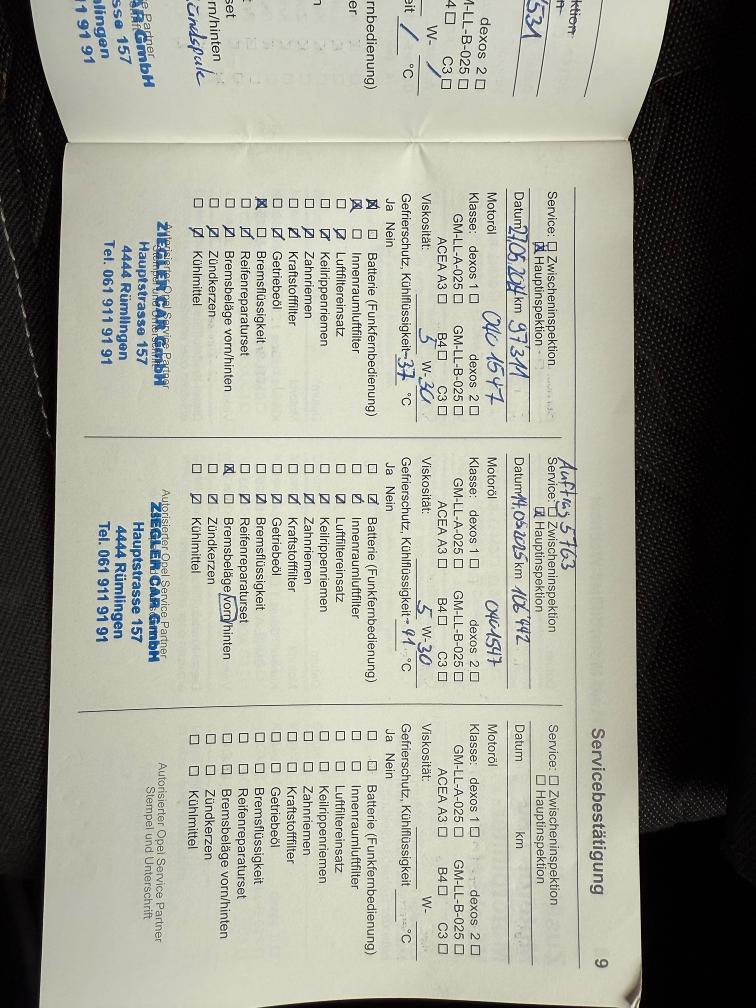 Servicebestätigung
9
531
dexos 2 ☐
C3 ☐
W- /
/ °C
Zündspule
CAR GmbH
sse 157
1 91 91
Service: ☐ Zwischeninspektion
☒ Hauptinspektion
Datum 27.06.2024 km 97311
Motoröl OAW 1547
Klasse: dexos 1 ☐ dexos 2 ☐
GM-LL-A-025 ☐ GM-LL-B-025 ☐
ACEA A3 ☐ B4 ☐ C3 ☐
Viskosität: 5 W- 30
Gefrierschutz, Kühlflüssigkeit -37 °C
Ja Nein
☒ ☐ Batterie (Funkfernbedienung)
☒ ☐ Innenraumluftfilter
☐ ☑ Luftfiltereinsatz
☐ ☑ Keilrippenriemen
☐ ☑ Zahnriemen
☐ ☑ Kraftstofffilter
☐ ☑ Getriebeöl
☒ ☐ Bremsflüssigkeit
☐ ☑ Reifenreparaturset
☐ ☑ Bremsbeläge vorn/hinten
☐ ☑ Zündkerzen
☐ ☑ Kühlmittel
Autorisierter Opel Service Partner
ZIEGLER CAR GmbH
Hauptstrasse 157
4444 Rümlingen
Tel. 061 911 91 91
Auftrag 5763
Service: ☐ Zwischeninspektion
☒ Hauptinspektion
Datum 14.05.2025 km 106'442
Motoröl OAW 1547
Klasse: dexos 1 ☐ dexos 2 ☐
GM-LL-A-025 ☐ GM-LL-B-025 ☐
ACEA A3 ☐ B4 ☐ C3 ☐
Viskosität: 5 W- 30
Gefrierschutz, Kühlflüssigkeit -41 °C
Ja Nein
☐ ☑ Batterie (Funkfernbedienung)
☐ ☑ Innenraumluftfilter
☐ ☑ Luftfiltereinsatz
☐ ☑ Keilrippenriemen
☐ ☑ Zahnriemen
☐ ☑ Kraftstofffilter
☐ ☑ Getriebeöl
☐ ☑ Bremsflüssigkeit
☐ ☑ Reifenreparaturset
☒ ☐ Bremsbeläge vorn/hinten
☐ ☑ Zündkerzen
☐ ☑ Kühlmittel
Autorisierter Opel Service Partner
ZIEGLER CAR GmbH
Hauptstrasse 157
4444 Rümlingen
Tel. 061 911 91 91
Service: ☐ Zwischeninspektion
☐ Hauptinspektion
Datum km
Motoröl
Klasse: dexos 1 ☐ dexos 2 ☐
GM-LL-A-025 ☐ GM-LL-B-025 ☐
ACEA A3 ☐ B4 ☐ C3 ☐
Viskosität: W-
Gefrierschutz, Kühlflüssigkeit °C
Ja Nein
☐ ☐ Batterie (Funkfernbedienung)
☐ ☐ Innenraumluftfilter
☐ ☐ Luftfiltereinsatz
☐ ☐ Keilrippenriemen
☐ ☐ Zahnriemen
☐ ☐ Kraftstofffilter
☐ ☐ Getriebeöl
☐ ☐ Bremsflüssigkeit
☐ ☐ Reifenreparaturset
☐ ☐ Bremsbeläge vorn/hinten
☐ ☐ Zündkerzen
☐ ☐ Kühlmittel
Autorisierter Opel Service Partner
Stempel und Unterschrift